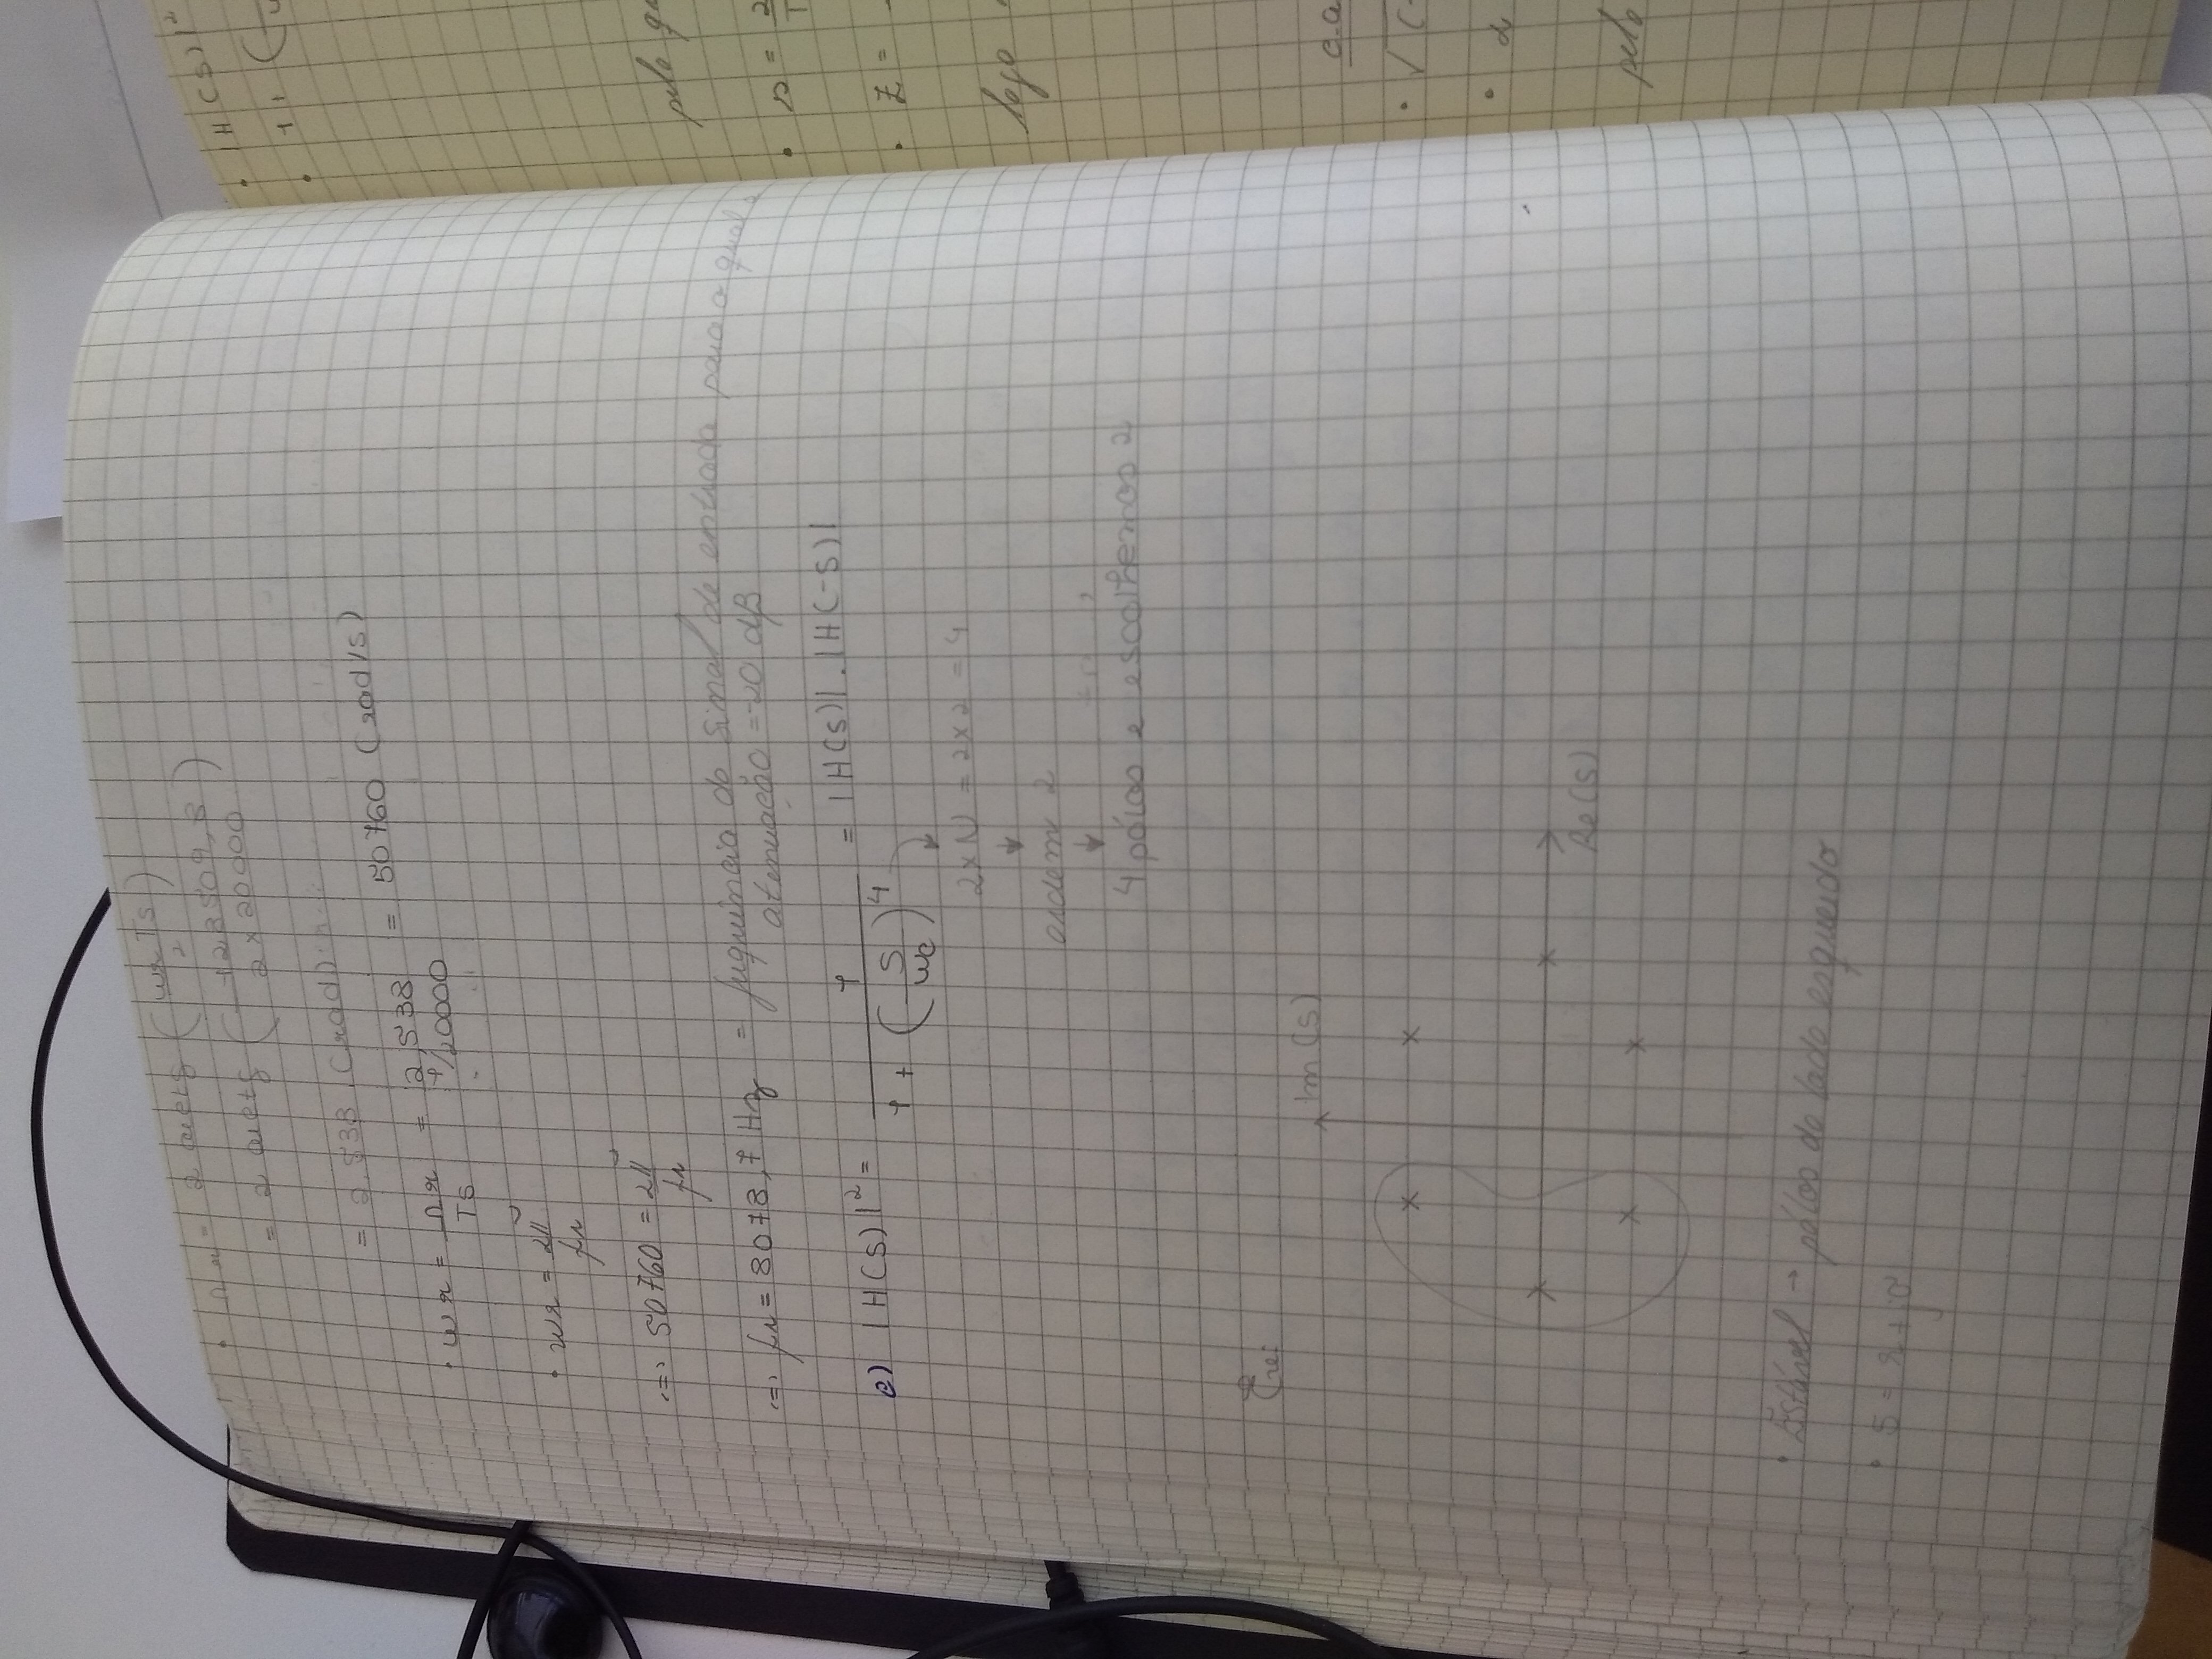 = 2 arctg ( wr Ts / 2 )
= 2 arctg ( 123509,8 / 2×20000 )
= 2,538 (rad)
• wr = Ωr / Ts = 2,538 / 1/20000 = 50760 (rad/s)
• wr = 2π / fr
(=) 50760 = 2π / fr
(=) fr = 8078,7 Hz = frequência do sinal de entrada para o qual a
atenuação = -20 dB
c) |H(s)|² = 1 / 1 + (s/wc)^4 = |H(s)|.|H(-s)|
2×N = 2×2 = 4
ordem 2
4 pólos e escolhemos 2
Im(s)
Re(s)
• Estável → pólos do lado esquerdo
• S = r + jσ
|H(s)|²
•
• 1+(
pelo
•
• Z =
logo
c.a
• √(-
• 2
pelo